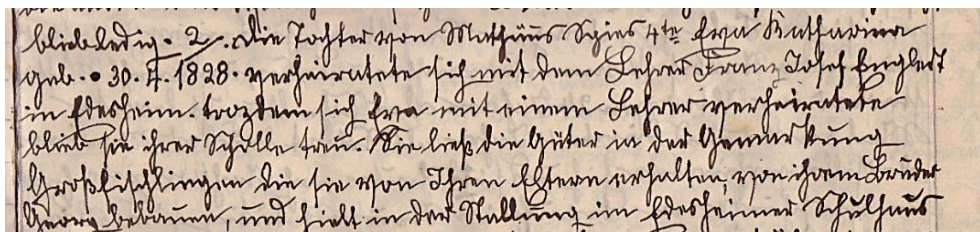 blieb ledig. 2. Die Tochter von Mathäus Spies 4te Eva Katharina
geb. 30. 4. 1828. verheiratete sich mit dem Lehrer Franz Josef Englert
in Edesheim. trozdem sich Eva mit einem Lehrer verheiratete
blieb sie ihrer Scholle treu. Sie ließ die Güter in der Gemarkung
Großfischlingen die sie von Ihren Eltern erhalten, von ihrem Bruder
Georg bebauen, und hielt in der Stallung im Edesheimer Schulhaus